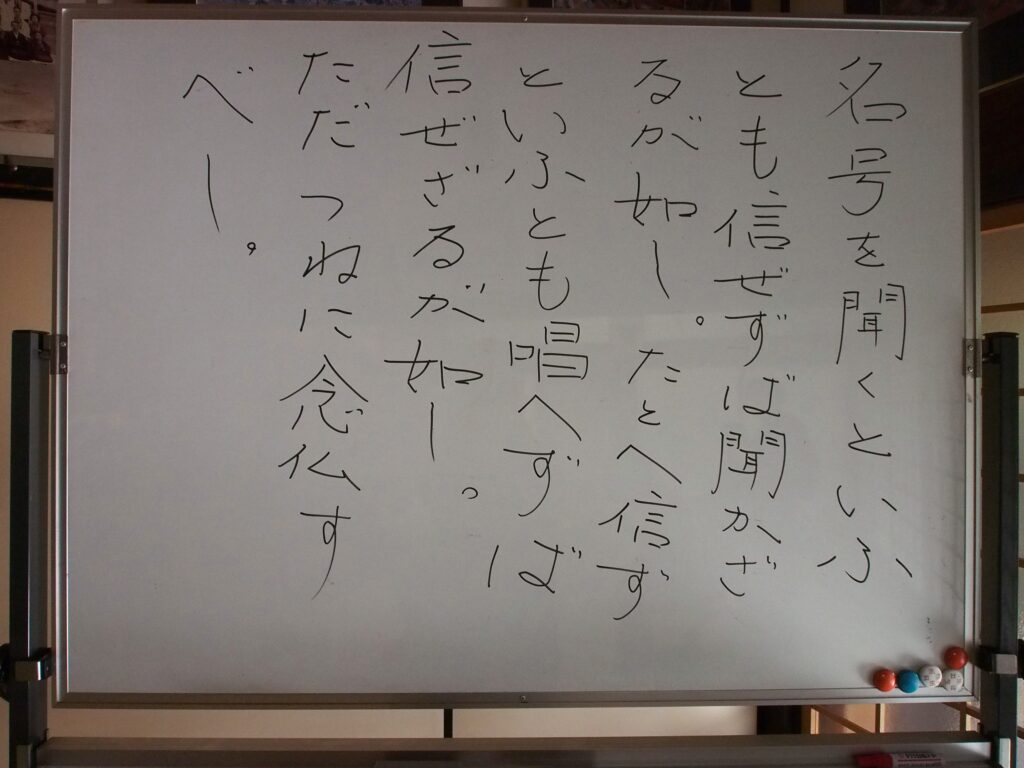 名号を聞くといふ
とも信ぜずば聞かざ
るが如し。たとへ信ず
といふとも唱へずば
信ぜざるが如し。
ただつねに念仏す
べし。